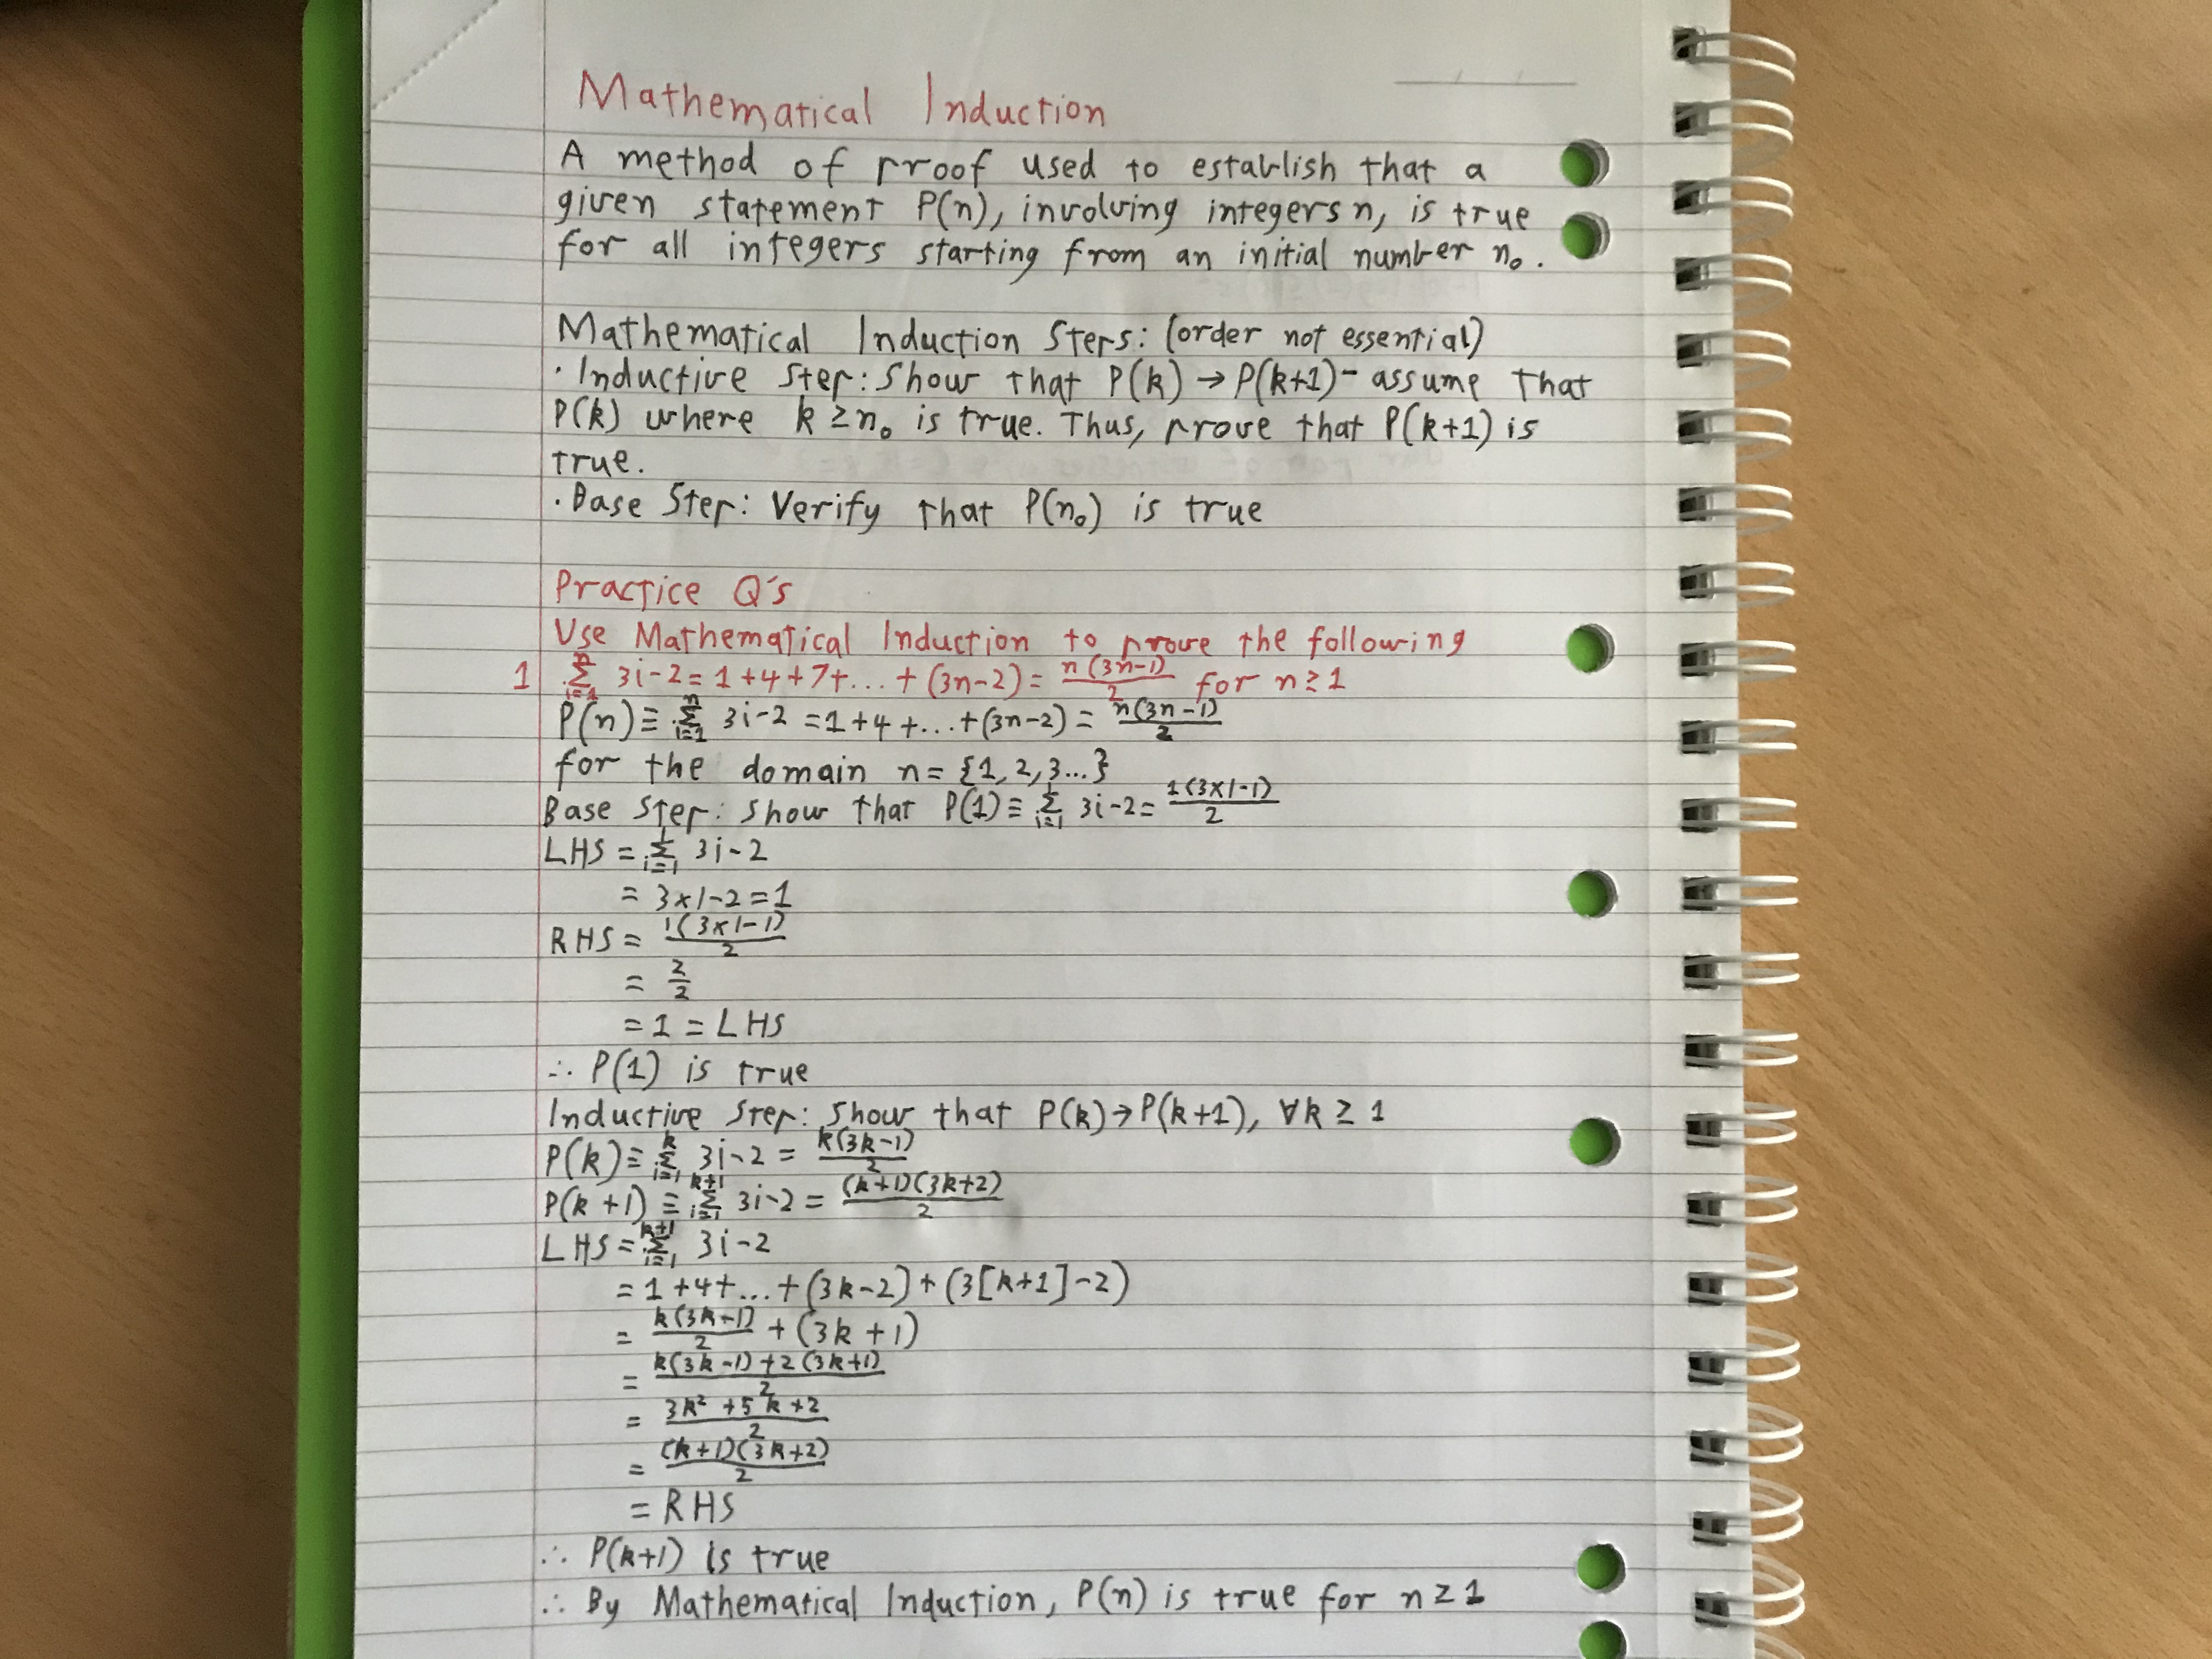 Mathematical Induction
A method of proof used to establish that a
given statement P(n), involving integers n, is true
for all integers starting from an initial number n₀.
Mathematical Induction Steps: (order not essential)
· Inductive Step: Show that P(k) → P(k+1) - assume that
P(k) where k ≥ n₀ is true. Thus, prove that P(k+1) is
true.
· Base Step: Verify that P(n₀) is true
Practice Q's
Use Mathematical Induction to prove the following
1 ∑_{i=1}^{n} 3i-2 = 1+4+7+...+(3n-2) = n(3n-1)/2 for n≥1
P(n) ≡ ∑_{i=1}^{n} 3i-2 = 1+4+...+(3n-2) = n(3n-1)/2
for the domain n = {1, 2, 3...}
Base Step: Show that P(1) ≡ ∑_{i=1}^{1} 3i-2 = 1(3×1-1)/2
LHS = ∑_{i=1}^{1} 3i-2
= 3×1-2 = 1
RHS = 1(3×1-1)/2
= 2/2
= 1 = LHS
∴ P(1) is true
Inductive Step: Show that P(k) → P(k+1), ∀k ≥ 1
P(k) ≡ ∑_{i=1}^{k} 3i-2 = k(3k-1)/2
P(k+1) ≡ ∑_{i=1}^{k+1} 3i-2 = (k+1)(3k+2)/2
LHS = ∑_{i=1}^{k+1} 3i-2
= 1+4+...+(3k-2)+(3[k+1]-2)
= k(3k-1)/2 + (3k+1)
= k(3k-1)+2(3k+1)/2
= 3k²+5k+2/2
= (k+1)(3k+2)/2
= RHS
∴ P(k+1) is true
∴ By Mathematical Induction, P(n) is true for n≥1